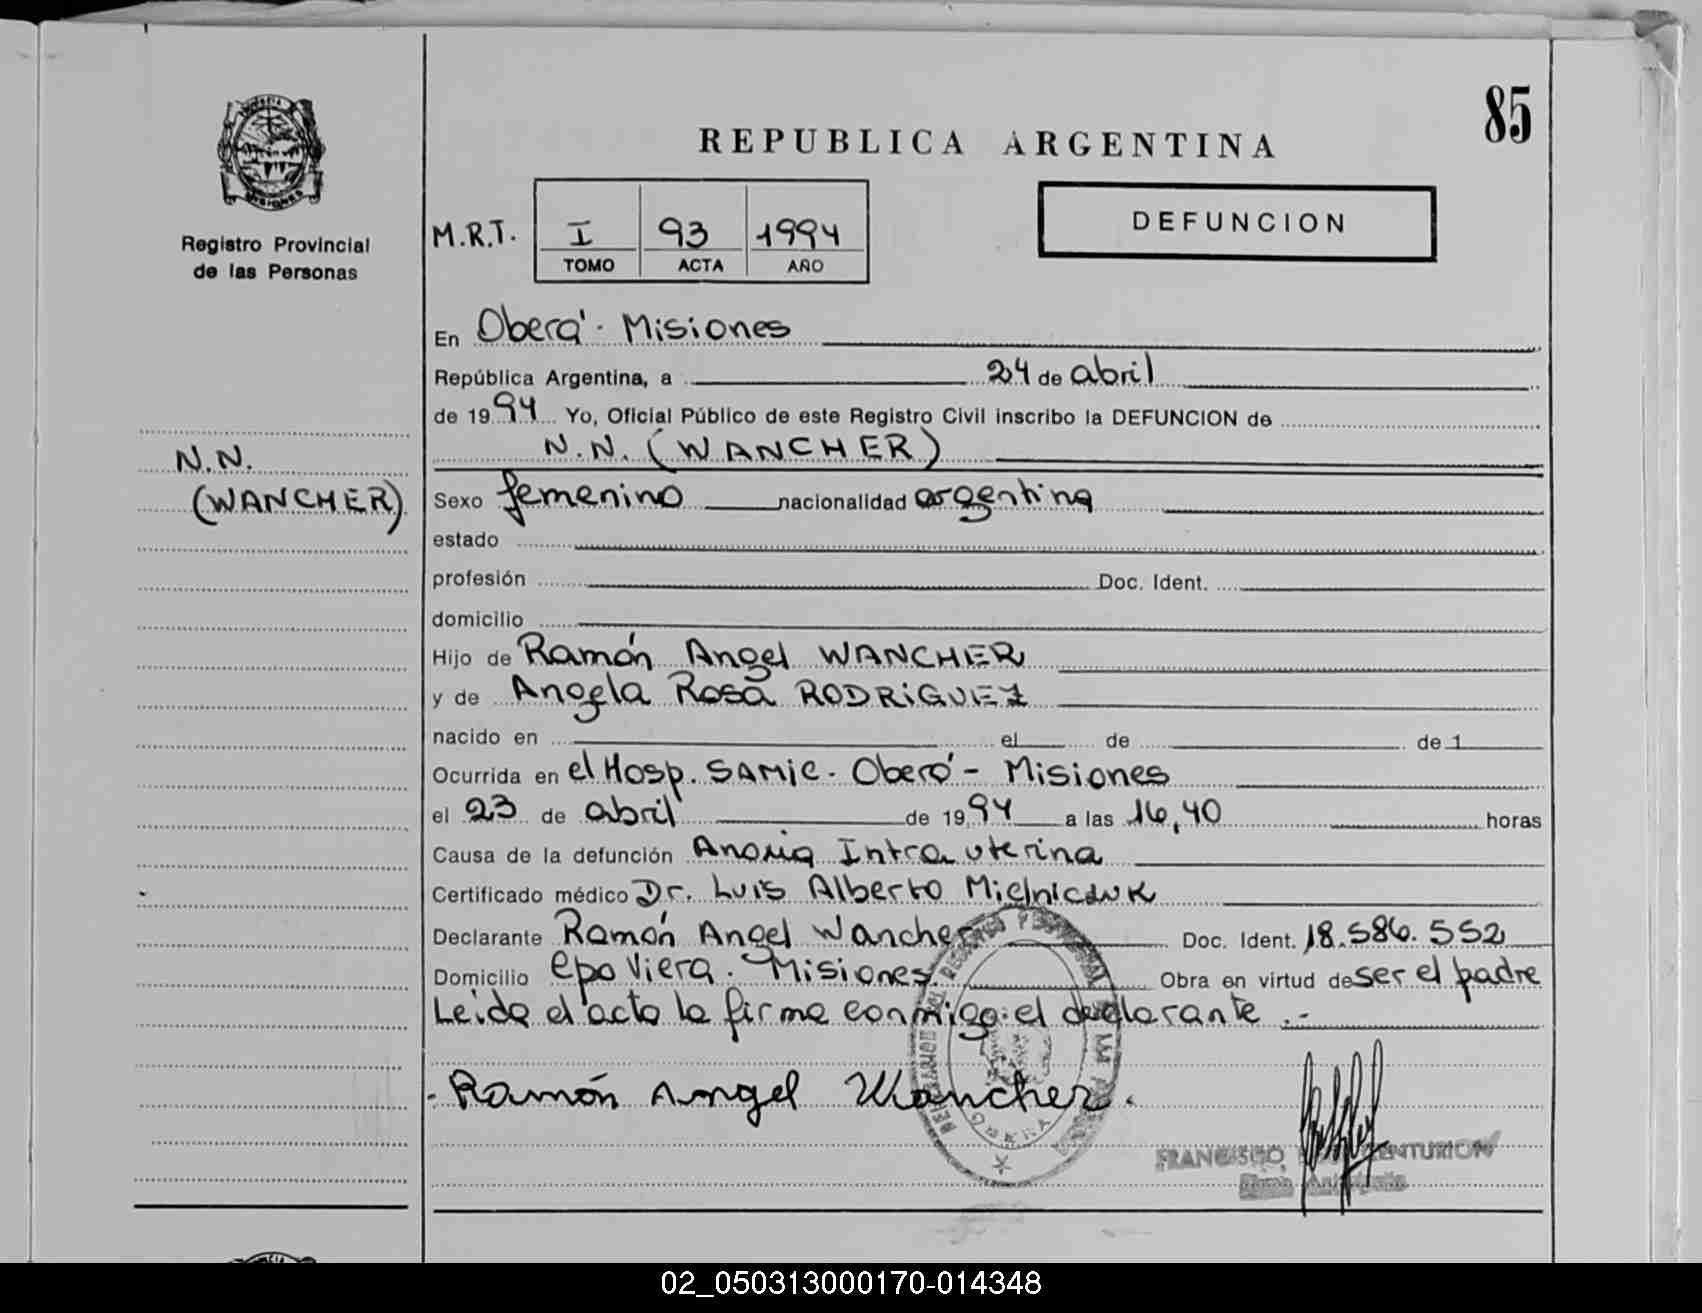 85
REPUBLICA ARGENTINA
MISIONES
Registro Provincial
de las Personas
M.R.T. I 93 1994
TOMO ACTA AÑO
DEFUNCION
N.N.
(WANCHER)
En Oberá - Misiones
República Argentina, a 24 de abril
de 1994 Yo, Oficial Público de este Registro Civil inscribo la DEFUNCION de
N.N. (WANCHER)
Sexo femenino nacionalidad argentina
estado
profesión Doc. Ident.
domicilio
Hijo de Ramón Angel WANCHER
y de Angela Rosa RODRIGUEZ
nacido en el de de 1
Ocurrida en el Hosp. SAMIC - Oberá - Misiones
el 23 de abril de 1994 a las 16,40 horas
Causa de la defunción Anoxia Intrauterina
Certificado médico Dr. Luis Alberto Mielniczuk
Declarante Ramón Angel Wancher Doc. Ident. 18.586.552
Domicilio cpo Viera - Misiones Obra en virtud de ser el padre
Leida el acta la firma conmigo: el declarante .-
Ramón Angel Wancher.
OBERA
FRANCISCO CENTURION
02_050313000170-014348